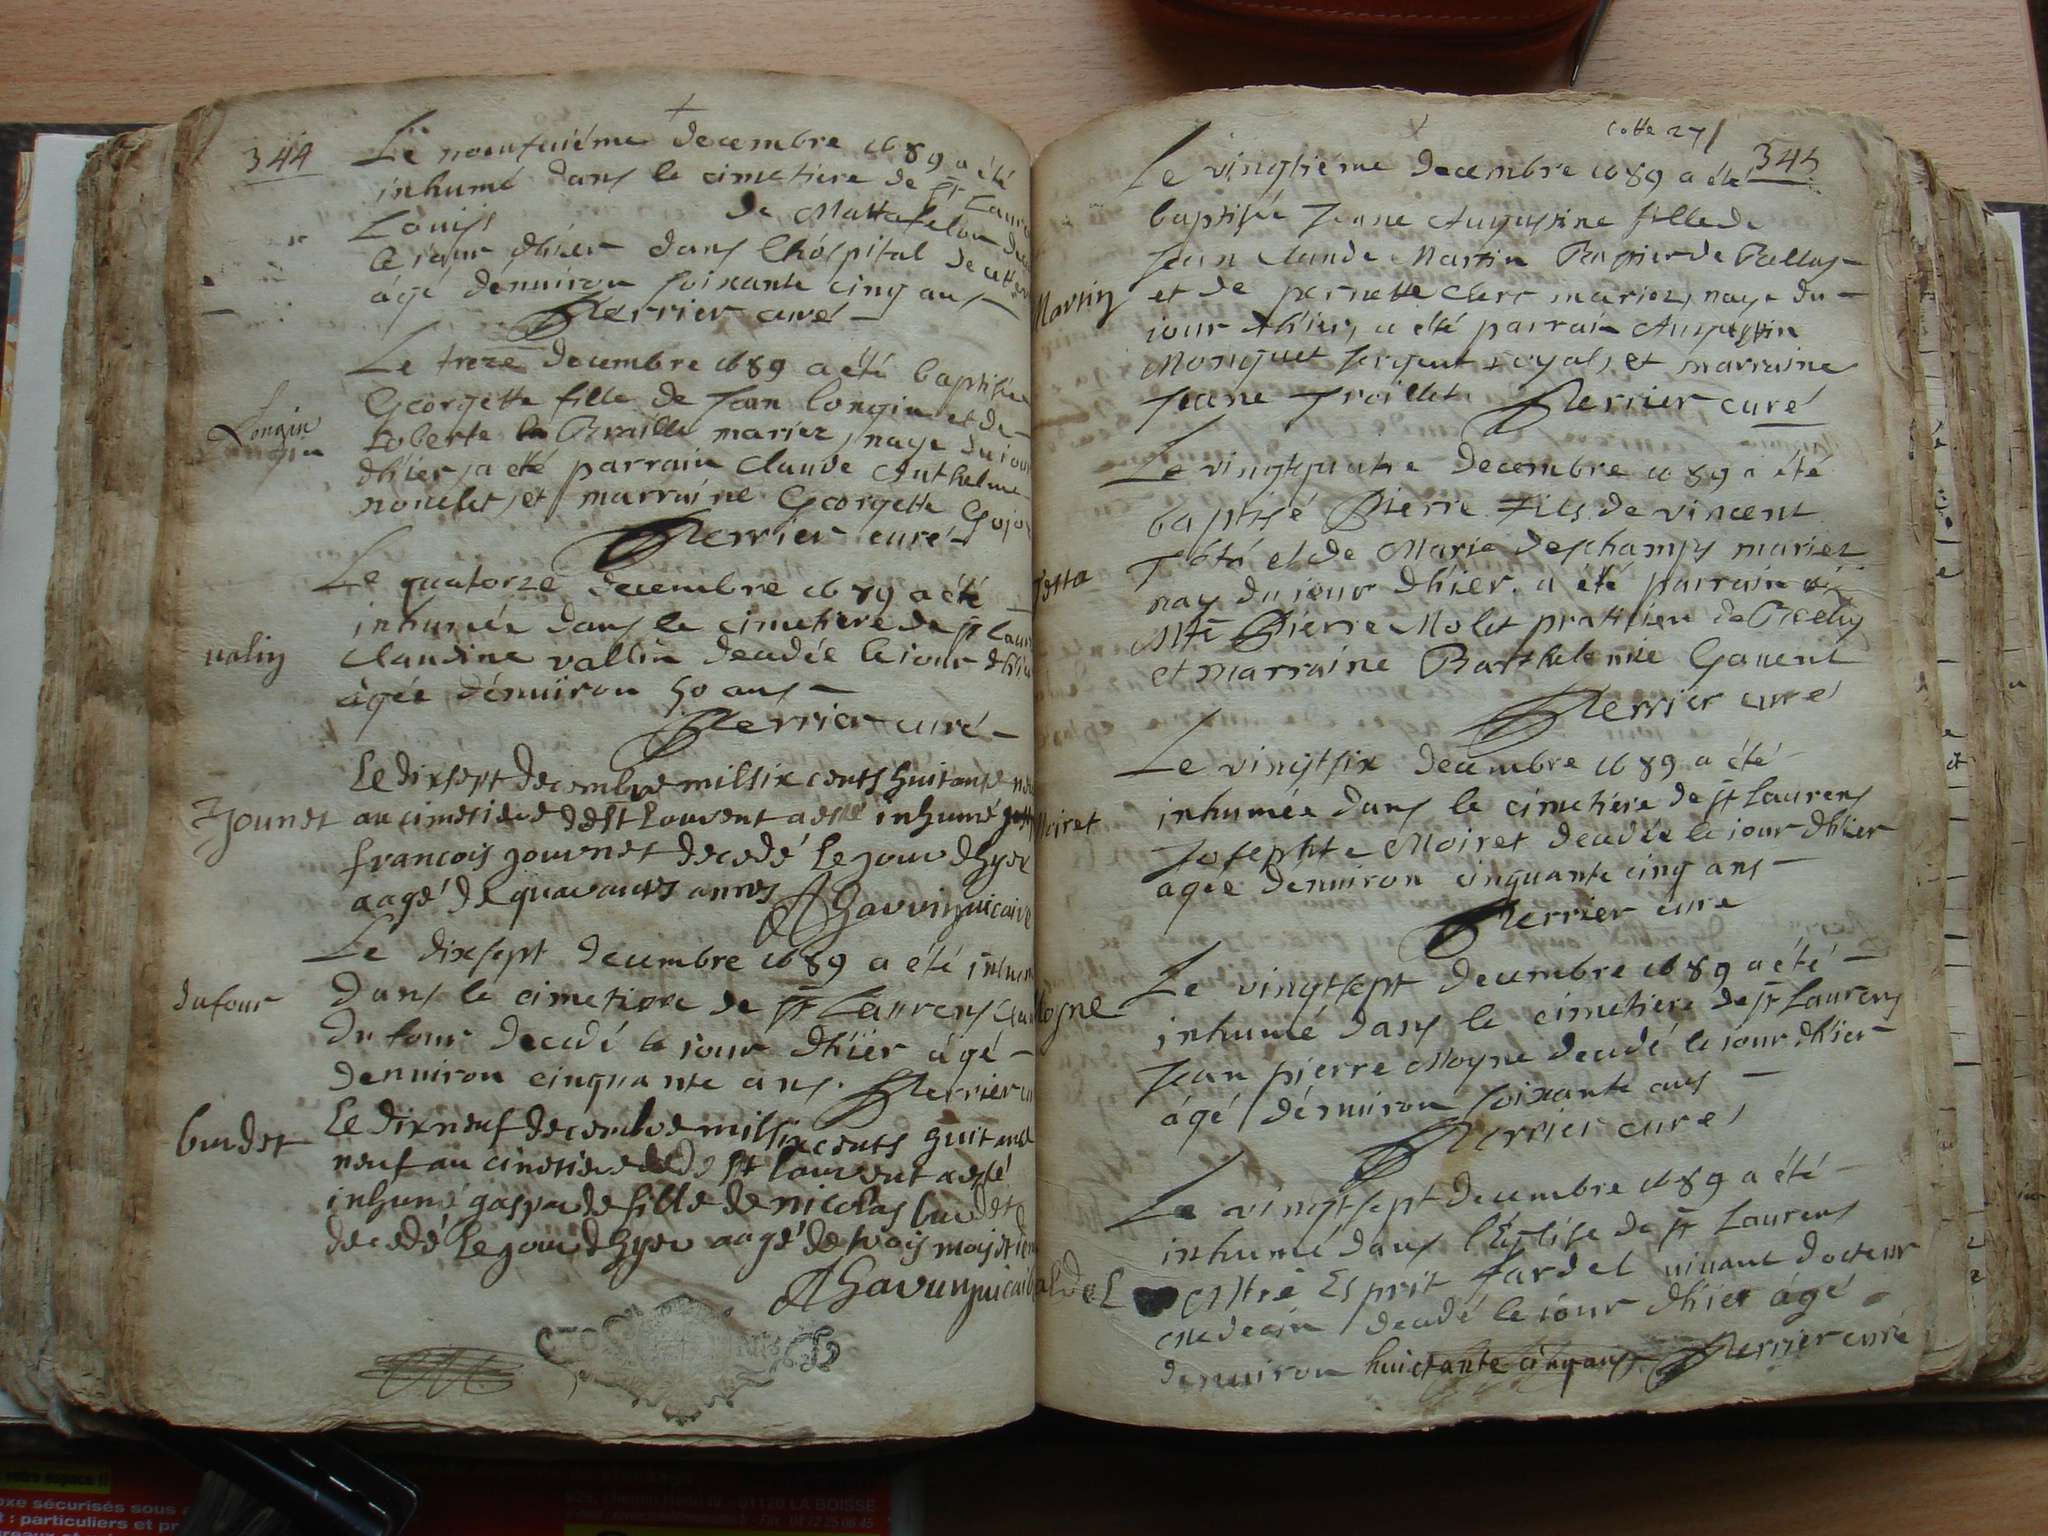 344
Le neufuiéme decembre 1689 a été
inhumé dans le cimetiere de st Laure
Louis de Mattafelon
le iour dhier dans lhospital de cette
âgé denuiron soixante cinq ans
Perrier curé
Le treze decembre 1689 a été baptisée
Longin
Georgette fille de Jean longin et de
mariez, naye du iour
dhier, a été parrain Claude Anthelme
nouelet, et marraine Georgette
Perrier curé
Le quatorze decembre 1689 a été
inhumée dans le cimetiere de st Laur
valin
Claudine vallin decedée le iour dhier
âgée denuiron 50 ans
Perrier curé
Le dixsept decembre mil six cents huitante
Journet
au cimetiere de st Laurent a esté inhumé
francois journet decedé le jour dhyer
aagé de quarante annes
vicaire
Le dixsept decembre 1689 a été inhum
dufour
dans le cimetiere de st Laurens
du four decedé le iour dhier âgé
denuiron cinquante ans. Perrier
burdet
Le dixneuf decembre mil six cents huitante
neuf au cimetiere de st laurent a esté
inhumé gasparde fille de nicolas burdet
decedé le jour dhyer aagé de trois mois et
vicaire
cotte 271
345
Le vingtiéme decembre 1689 a été
baptisée Jeane Augustine fille de
Jean Claude Martin
Martin
et de pernette Clerc mariez, naye du
iour dhier, a été parrain Augustin
Moriquet sergent royal, et marraine
Jeane Troillet Perrier curé
Le vingtquatre decembre 1689 a été
baptisé Pierre fils de vincent
Testa
et de Marie deschamps mariez
nay du iour dhier. a été parrain
Mre Pierre Molet pratticien de
et marraine Barthelemie Gauent
Perrier curé
Le vingtsix decembre 1689 a été
inhumée dans le cimetiere de st Laurens
Moiret
Josephte Moiret decedée le iour dhier
agée denuiron cinquante cinq ans
Perrier cure
Le vingtsept decembre 1689 a été
Moyne
inhumé dans le cimetiere de st Laurens
Jean pierre Moyne decedé le iour dhier
âgé denuiron soixante ans
Perrier curé
Le vingtsept decembre 1689 a été
inhumé dans l'Eglise de st Laurens
Mtre Esprit fardel viuant docteur
medecin decedé le iour dhier âgé
denuiron huictante cinq ans. Perrier curé
01120 LA BOISSE